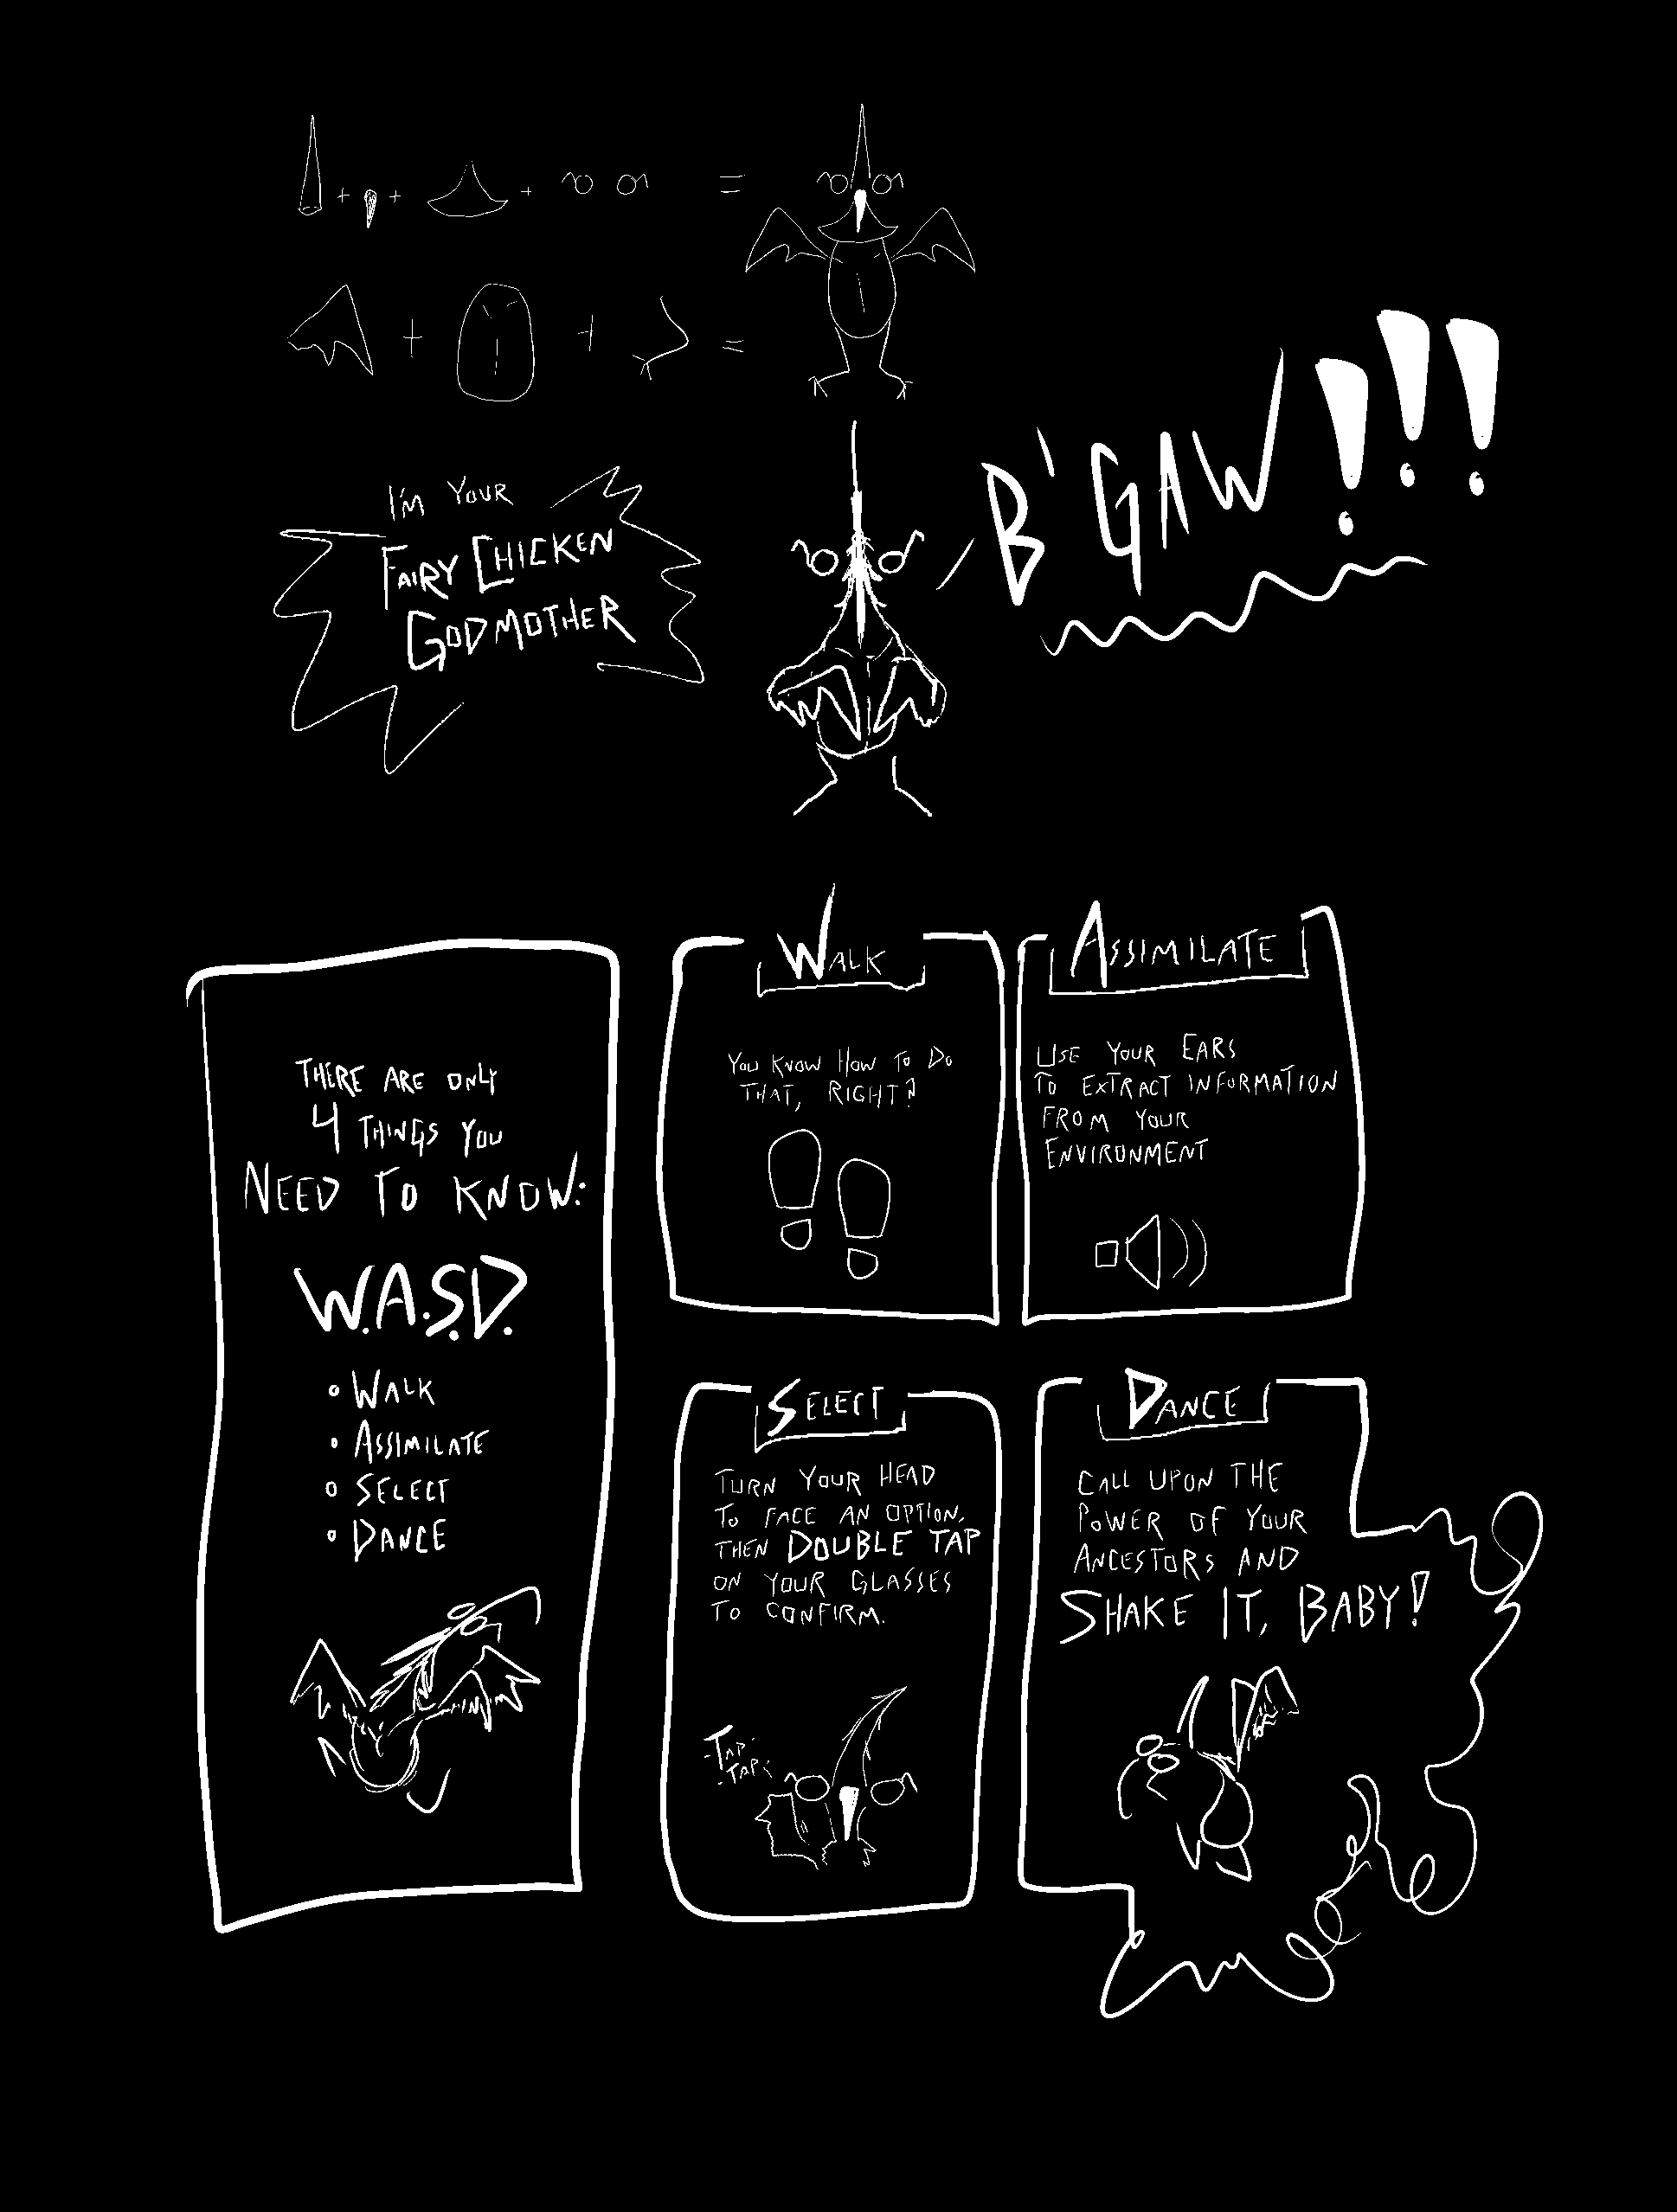 I'M YOUR
FAIRY CHICKEN
GODMOTHER
B'GAW!!!
THERE ARE ONLY
4 THINGS YOU
NEED TO KNOW:
W.A.S.D.
• WALK
• ASSIMILATE
• SELECT
• DANCE
WALK
YOU KNOW HOW TO DO
THAT, RIGHT?
ASSIMILATE
USE YOUR EARS
TO EXTRACT INFORMATION
FROM YOUR
ENVIRONMENT
SELECT
TURN YOUR HEAD
TO FACE AN OPTION,
THEN DOUBLE TAP
ON YOUR GLASSES
TO CONFIRM.
-TAP-
-TAP-
DANCE
CALL UPON THE
POWER OF YOUR
ANCESTORS AND
SHAKE IT, BABY!